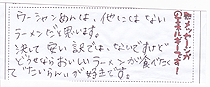 ウーシャンめんは、他にはない
ラーメンだと思います。
決して安い訳では、ないですけど
どうせならおいしいラーメンが食べたく
て だいらい が好きです。
メッセージが
エネルギーです!